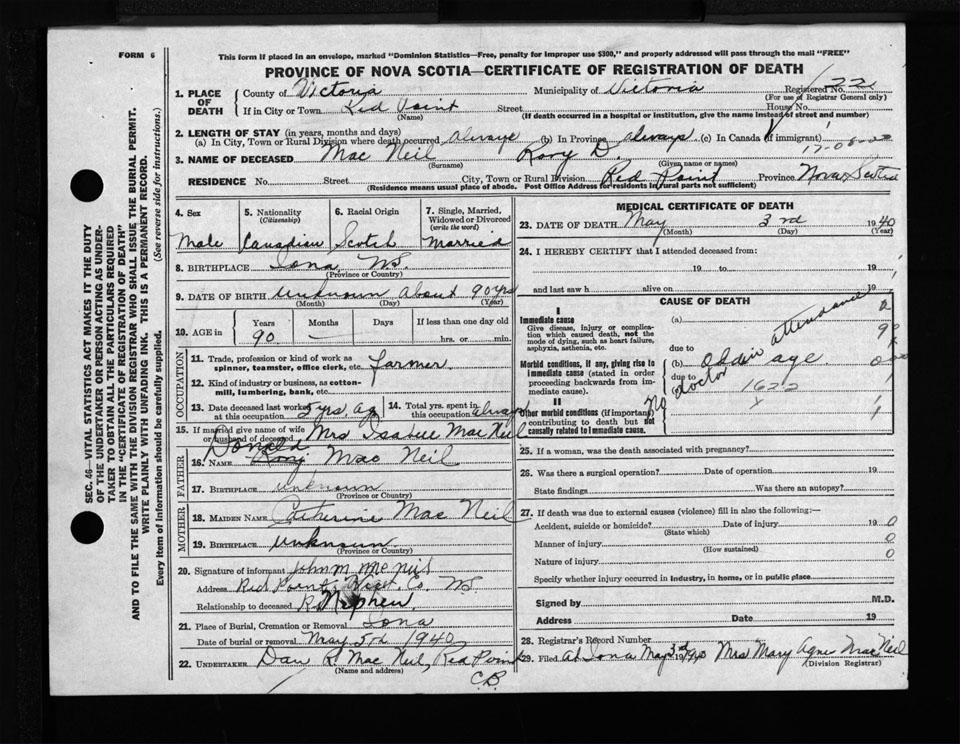 FORM 6
This form if placed in an envelope, marked "Dominion Statistics—Free, penalty for improper use $300," and properly addressed will pass through the mail "FREE"
PROVINCE OF NOVA SCOTIA—CERTIFICATE OF REGISTRATION OF DEATH
SEC. 46—VITAL STATISTICS ACT MAKES IT THE DUTY
OF THE UNDERTAKER OR PERSON ACTING AS UNDER-
TAKER TO OBTAIN ALL THE PARTICULARS REQUIRED
IN THE "CERTIFICATE OF REGISTRATION OF DEATH"
AND TO FILE THE SAME WITH THE DIVISION REGISTRAR WHO SHALL ISSUE THE BURIAL PERMIT.
WRITE PLAINLY WITH UNFADING INK. THIS IS A PERMANENT RECORD.
Every item of information should be carefully supplied. (See reverse side for instructions.)
1. PLACE OF DEATH
County of Victoria Municipality of Victoria Registered No. 221
(For use of Registrar General only)
If in City or Town Red Point Street House No.
(Name) (If death occurred in a hospital or institution, give the name instead of street and number)
2. LENGTH OF STAY (in years, months and days)
(a) In City, Town or Rural Division where death occurred always (b) In Province always (c) In Canada (if immigrant)
3. NAME OF DECEASED Mac Neil Rory D.
(Surname) (Given name or names)
RESIDENCE No. Street City, Town or Rural Division Red Point Province Nova Scotia
(Residence means usual place of abode. Post Office Address for residents in rural parts not sufficient)
4. Sex 5. Nationality (Citizenship) 6. Racial Origin 7. Single, Married, Widowed or Divorced (write the word)
Male Canadian Scotch Married
8. BIRTHPLACE Iona N.S.
(Province or Country)
9. DATE OF BIRTH unknown about 90 yrs
(Month) (Day) (Year)
10. AGE in Years Months Days If less than one day old
90 — hrs. or min.
OCCUPATION
11. Trade, profession or kind of work as spinner, teamster, office clerk, etc. farmer
12. Kind of industry or business, as cotton-mill, lumbering, bank, etc.
13. Date deceased last worked at this occupation 5 yrs. ag 14. Total yrs. spent in this occupation always
15. If married give name of wife or husband of deceased Mrs Isabell Mac Neil
FATHER
Donald
16. Name Rory Mac Neil
17. BIRTHPLACE unknown
(Province or Country)
MOTHER
18. MAIDEN NAME Catherine Mac Neil
19. BIRTHPLACE unknown
(Province or Country)
20. Signature of informant John M
Address Red Point Vict. Co. N.S.
Relationship to deceased Nephew
21. Place of Burial, Cremation or Removal Iona
Date of burial or removal May 5th 1940
22. UNDERTAKER Dan R. Mac Neil, Red Point
(Name and address)
C.B.
MEDICAL CERTIFICATE OF DEATH
23. DATE OF DEATH May 3rd 1940
(Month) (Day) (Year)
24. I HEREBY CERTIFY that I attended deceased from:
19 to 19
and last saw h alive on 19
CAUSE OF DEATH
I
Immediate cause
Give disease, injury or complication which caused death, not the mode of dying, such as heart failure, asphyxia, asthenia, etc.
(a)
due to
Morbid conditions, if any, giving rise to immediate cause (stated in order proceeding backwards from immediate cause).
(b) age
due to
(c) 1622
No Doctor in attendance
II
Other morbid conditions (if important) contributing to death but not causally related to immediate cause.
25. If a woman, was the death associated with pregnancy?
26. Was there a surgical operation? Date of operation 19
State findings Was there an autopsy?
27. If death was due to external causes (violence) fill in also the following:
Accident, suicide or homicide? Date of injury 19 0
(State which)
Manner of injury 0
(How sustained)
Nature of injury 0
Specify whether injury occurred in industry, in home, or in public place
Signed by M.D.
Address Date 19
28. Registrar's Record Number
29. Filed at Iona May 3rd 1940 Mrs Mary Agnes MacNeil
(Division Registrar)